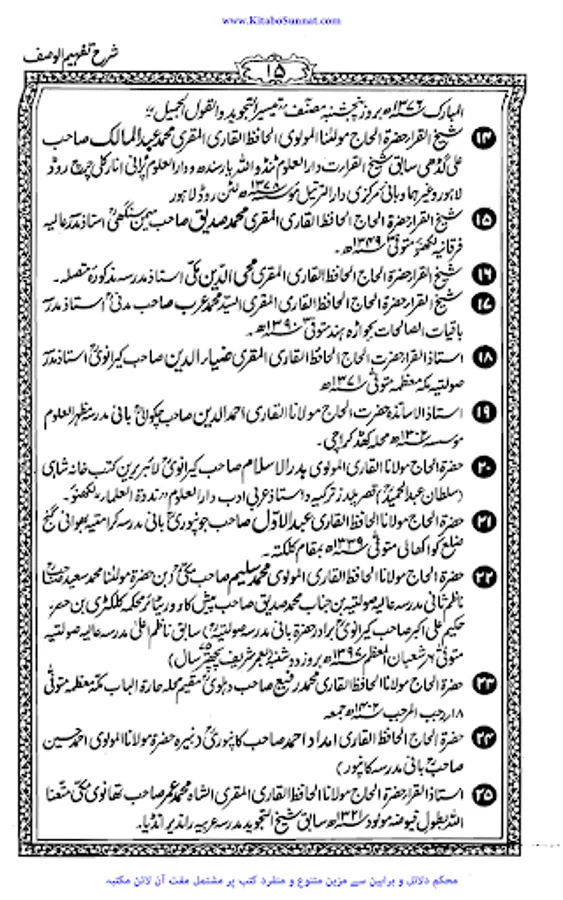 www.KitaboSunnat.com
شرح تفہیم الوصف
۱۵
المبارک ۱۳۷۶ھ بروز پنجشنبہ مصنف "تیسیر التجوید و القول الجمیل"
۱۴ شیخ القراء حضرۃ الحاج مولٰنا المولوی الحافظ القاری المقری محمد عبد المالک صاحب
علی گڈھی سابق شیخ القراءت دارالعلوم ٹنڈو اللہ یار سندھ و دارالعلوم پرانی انارکلی چرچ روڈ
لاہور وغیرہما و بانی مرکزی دارالترتیل مؤسسہ ۱۳۷۸ھ لٹن روڈ لاہور
۱۵ شیخ القراء حضرۃ الحاج الحافظ القاری المقری محمد صدیق صاحب میمن سنگھی استاذ مدرسہ عالیہ
فرقانیہ لکھنؤ متوفی ۱۳۴۹ھ۔
۱۶ شیخ القراء حضرۃ الحاج الحافظ القاری المقری محی الدین مکی استاذ مدرسہ مذکورہ متصلہ۔
۱۷ شیخ القراء حضرۃ الحاج الحافظ القاری المقری السید محمد عرب صاحب مدنی استاذ مدرسہ
باقیات الصالحات بجواڑہ ہند متوفی ۱۳۹۰ھ۔
۱۸ استاذ القراء حضرت الحاج الحافظ القاری المقری ضیاء الدین صاحب کیرانوی استاذ مدرسہ
صولتیہ مکہ معظمہ متوفی ۱۳۷۱ھ
۱۹ استاذ الاساتذہ حضرت الحاج مولانا القاری احمد الدین صاحب چکوالی بانی مدرسہ مظہر العلوم
مؤسسہ ۱۳۰۲ھ محلہ کھڈہ کراچی۔
۲۰ حضرۃ الحاج مولانا القاری المولوی بدر الاسلام صاحب کیرانوی لائبریرین کتب خانہ شاہی
(سلطان عبد الحمید) قصر یلدز ترکیہ و استاذ عربی ادب دارالعلوم "ندوۃ العلماء" لکھنؤ۔
۲۱ حضرۃ الحاج مولانا الحافظ القاری عبد الاوّل صاحب جونپوری بانی مدرسہ کرامتیہ بھوانی گنج
ضلع نواکھالی متوفی ۱۳۳۹ھ بمقام کلکتہ۔
۲۲ حضرۃ الحاج مولانا الحافظ القاری المولوی محمد سلیم صاحب مکی بن حضرۃ مولٰنا محمد سعید صاحب
ناظم ثانی مدرسہ عالیہ صولتیہ بن جناب محمد صدیق صاحب پیش کار و ریٹائر محکمہ کلکٹری بن حضرۃ
حکیم علی اکبر صاحب کیرانوی برادر حضرۃ بانی مدرسہ صولتیہ) سابق ناظم اعلیٰ مدرسہ عالیہ صولتیہ
متوفی ۶ شعبان المعظم ۱۳۹۷ھ بروز دوشنبہ (بعمر شریف پچھتر ۷۵ سال)
۲۳ حضرۃ الحاج مولانا الحافظ القاری محمد رفیع صاحب دہلوی مقیم محلہ حارۃ الباب مکہ معظمہ متوفی
۱۸ رجب المرجب ۱۴۰۲ھ جمعہ
۲۴ حضرۃ الحاج الحافظ القاری امداد احمد صاحب کانپوری (نبیرہ حضرۃ مولانا المولوی احمد حسین
صاحب بانی مدرسہ کانپور)
۲۵ استاذ القراء حضرۃ الحاج مولانا الحافظ القاری المقری الشاہ محمد عمر صاحب تھانوی مکی متعنا
اللہ بطول فیوضہ مولود ۱۳۲۱ھ سابق شیخ التجوید مدرسہ عربیہ راندیر انڈیا۔
محکم دلائل و براہین سے مزین متنوع و منفرد کتب پر مشتمل مفت آن لائن مکتبہ